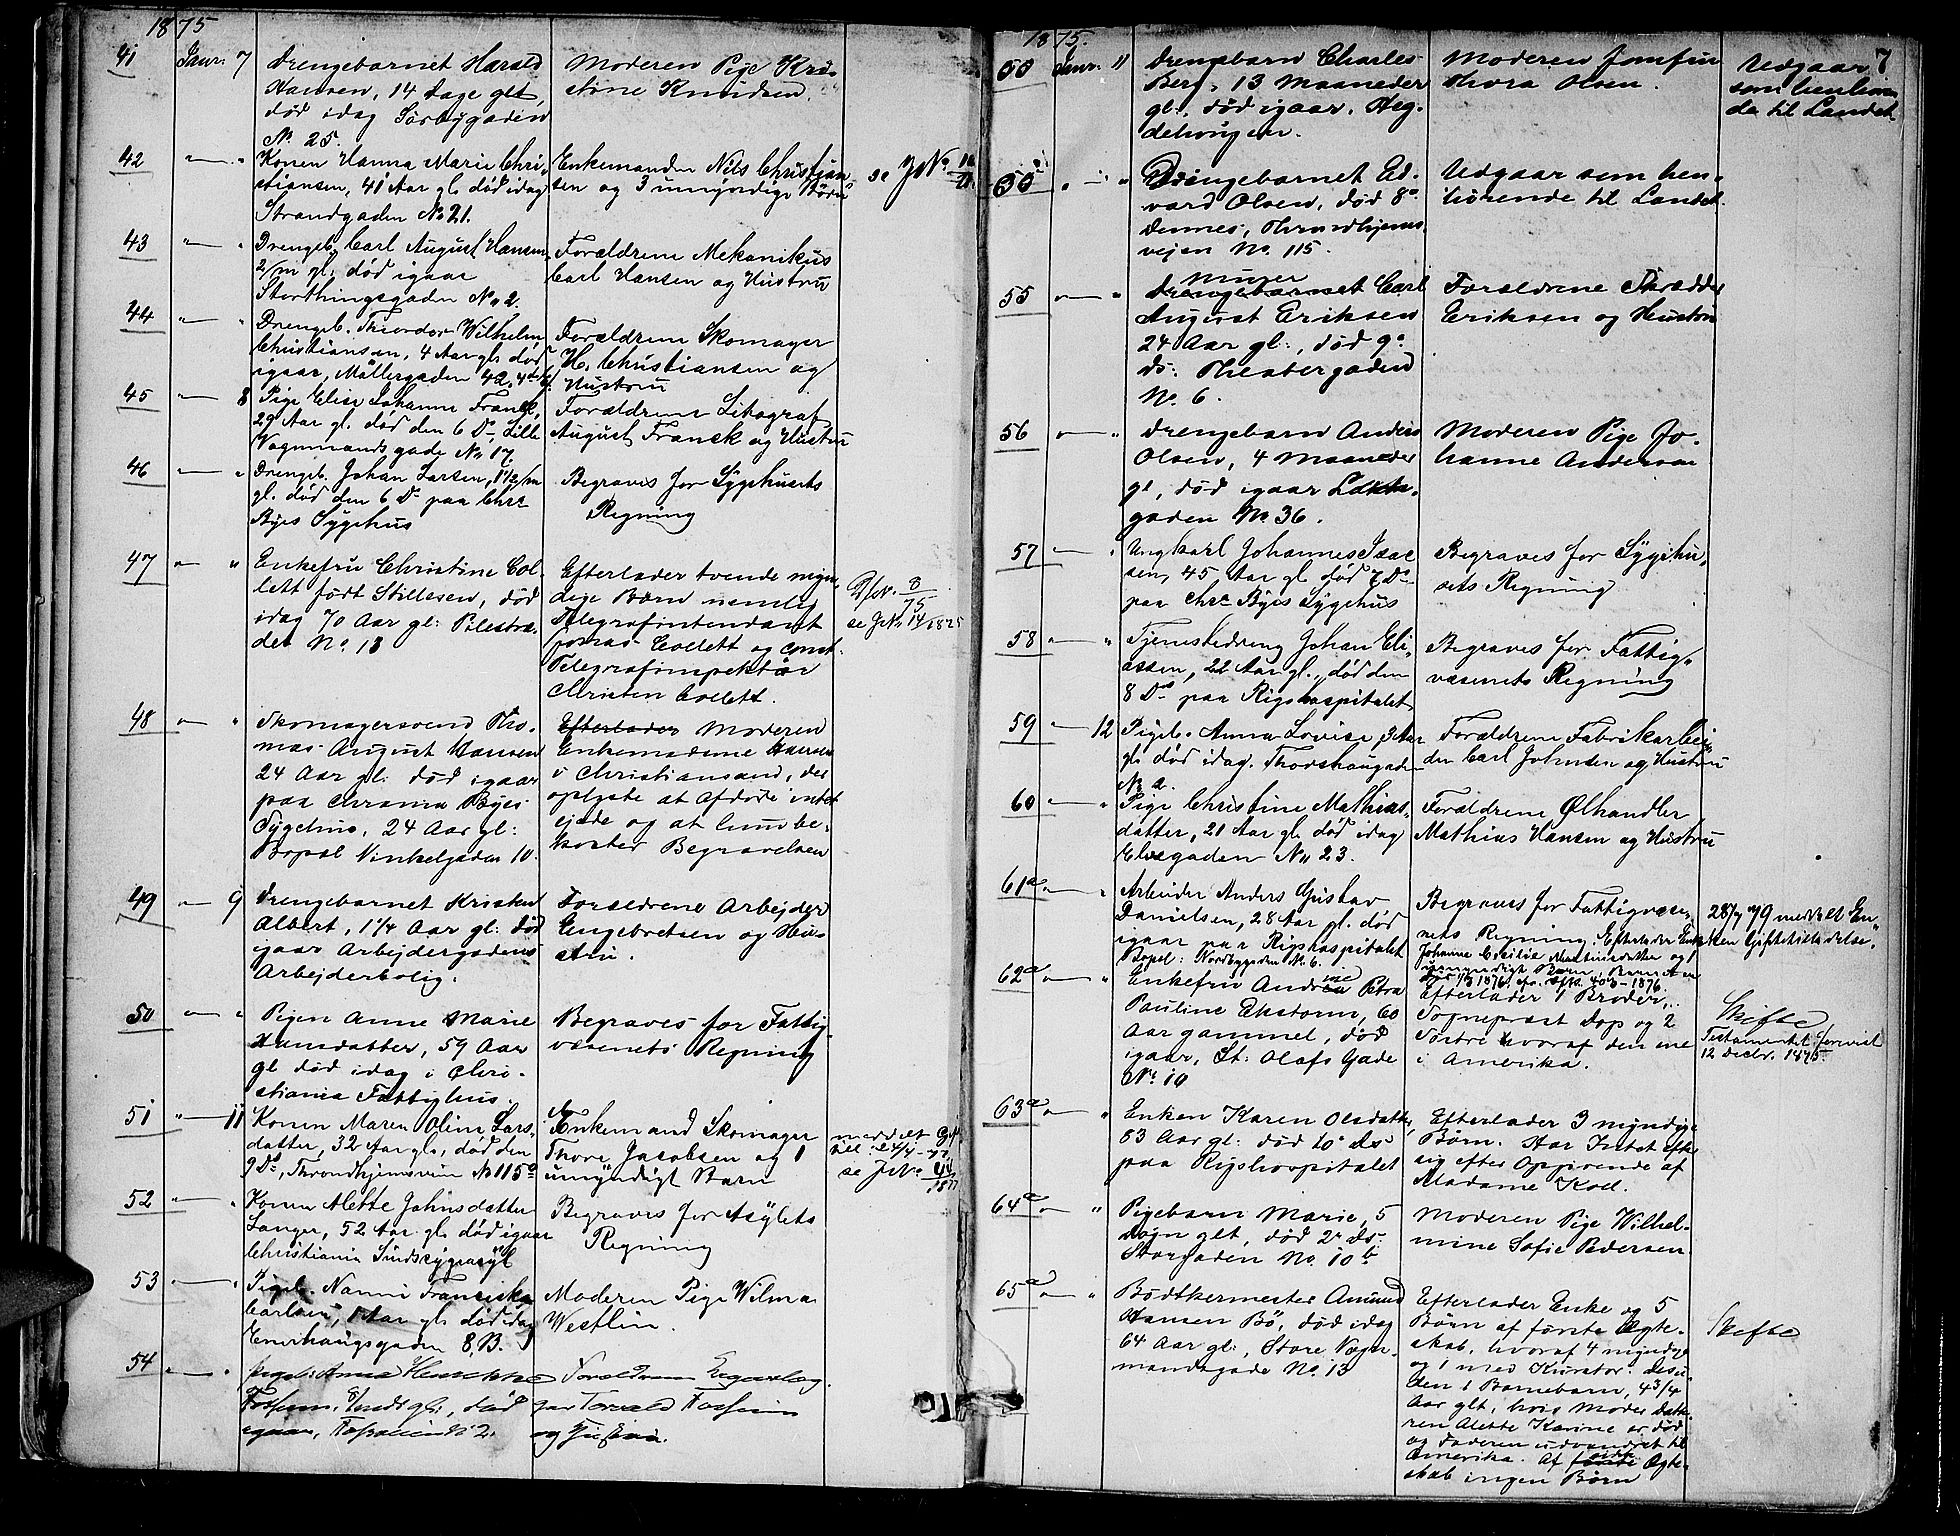 1875
41 Janr. 7 Drengebarnet Harald
Hansen, 14 dage glt,
død idag Sorbygaden
No. 25.
Moderen Pige Kri-
stine Knudsen.
42 Konen Hanna Marie Chri-
stiansen, 41 Aar gl. død idag
Strandgaden No 21.
Enkemanden Nils Christian-
sen og 3 umyndige Børn
se JNo.
43 Drengeb. Carl August Hansen
2/m gl. død igaar
Storthingsgaden No 2.
Forældrene Mekanikus
Carl Hansen og Hustru
44 Drengeb. Theodor Wilhelm
Christiansen, 4 Aar gl. død
igaar, Møllergaden 42,
Forældrene Skomager
H. Christiansen og
Hustru
45 8 Pige Elise Johanne Franck,
29 Aar gl. død den 6 Ds, Lille
Vognmandsgade No 17.
Forældrene Litograf
August Franck og Hustru
46 Drengeb. Johan Larsen, 1 1/2/m
gl. død den 6 Ds paa Chra
Byes Sygehus
Begraves for Sygehusets
Regning
47 Enkefru Christine Col-
lett født Stillesen, død
idag 70 Aar gl: Pilestræ-
det No. 13
Efterlader tvende myn-
dige Børn nemlig
Telegrafintendant
Collett og const.
Telegrafinspektør
Christen Collett.
8/75
se JNo 14/1875
48 Skomagersvend Tho-
mas August Hansen
24 Aar gl: død igaar
paa Chrania Byes
Sygehus, 24 Aar gl:
Bopæl Vinkelgaden 10.
Efterlader Moderen
Enkemadame Hansen
i Christiansand, der
oplyste at Afdøde intet
ejede og at hun be-
koster Begravelsen
49 9 Drengebarnet Kristen
Albert, 1 1/4 Aar gl: død
igaar Arbejdergadens
Arbejderbolig.
Forældrene Arbejder
Engebretsen og Hu-
stru.
50 Pigen Anne Marie
Hansdatter, 59 Aar
gl død idag i Chri-
stiania Fattighus.
Begraves for Fattig-
væsenets Regning
51 11 Konen Maren Oline Lars-
datter, 32 Aar gl., død den
9 Ds, Throndhjemsveien No 115a
Enkemand Skomager
Thore Jacobsen og 1
umyndigt Barn
meddelt
se JNo.
52 Konen Alette Johnsdatter
Langer, 52 Aar gl. død igaar
Christiania Sindssygeasyl
Begraves for Asylets
Regning
53 Pigeb. Nanni Franciska
Carlsen, 1 Aar gl. død idag
Enerhaugsgaden 8,B.
Moderen Pige Wilma
Westlin.
54 Pigeb: Anna Henrikke
død
igaar,
Forældrene
og
1875.
7
55 Janr. 11 Drengebarn Charles
Berg, 13 Maaneder
gl, død igaar, Heg-
dehougen.
Moderen Jomfru
Thora Olsen.
Udgaar
som henhøren-
de til Landet
55 Drengebarnet Ed-
vard Olsen, død 8de
Dennes, Throndhjems-
vejen No. 115.
Udgaar som hen-
hørende til Landet.
55 Murer
Drengebarnet Carl
August Eriksen
24 Aar gl:, død 9de
Ds: Theatergaden
No. 6.
Forældrene Skrædder
Eriksen og Hustru
56 Drengebarn Anders
Olsen, 4 Maaneder
gl, død igaar
gaden No 36.
Moderen Pige Jo-
hanne Andersen
57 Ungkarl Johannes Isac
sen, 45 Aar gl. død 7 Ds
paa Chra Byes Sygehus
Begraves for Sygehu-
sets Regning
58 Tjenestedreng Johan Eli-
assen, 22 Aar gl. død den
8 Ds paa Rigshospitalet
Begraves for Fattig-
væsenets Regning
59 12 Pigeb. Anna Lovise, 3 Aar
gl. død idag. Thorshaugaden
No 2.
Forældrene Fabrikarbei-
der Carl Johnsen og Hustru
60 Pige Christine Mathias-
datter, 21 Aar gl. død idag
Elvegaden No 23.
Forældrene Ølhandler
Mathias Hansen og Hustru
61a Arbeider Anders Gustav
Danielsen, 28 Aar gl. død
igaar paa Rigshospitalet
Bopæl: Nordbygaden No. 6.
Begraves for Fattigvæse-
nets Regning. Efterlader Enke
Johanne Cecilie Martinsdatter og 1
umyndigt Barn,
1876
28/7 79 meddelt En-
ken Giftetilladelse.
62a Enkefru Andrine Petra
Pauline Ekstorm, 60
Aar gammel, død
igaar, St: Olafs Gade
No. 10
Efterlader 1 Broder,
Sognepræst Dop og 2
Søstre hvoraf den ene
i Amerika.
Skifte
Testamentet forevist
12 Decbr. 1875.
63a Enken Karen Olsdatter,
83 Aar gl: død 10de Ds
paa Rigshospitalet
Efterlader 3 myndige
Børn. Har Intet efter
sig efter Opgivende af
Madame Koll.
64a Pigebarn Marie, 5
Døgn glt, død 2de Ds:
Storgaden No. 10b
Moderen Pige Wilhel-
mine Sofie Pedersen
65a Bødtkermester Amund
Hansen Bø, død idag
64 Aar gl:, Store Vogn-
mandsgade No. 13
Efterlader Enke og 5
Børn af første Ægte-
skab, hvoraf 4 myndige
og 1 med Kurator. desu-
den 1 Barnebarn, 4 3/4
Aar glt, hvis Moder Datte-
ren Alette Karine er død
og Faderen udvandret til
Amerika. Af første sidste Ægte-
skab ingen Børn
Skifte